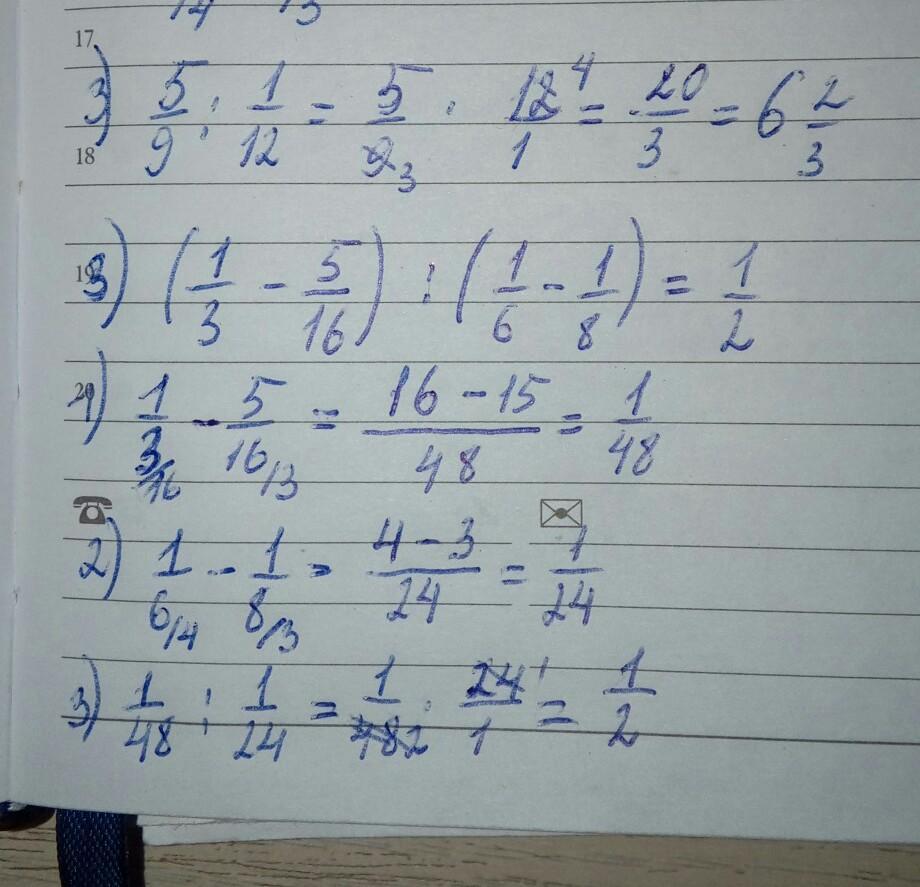 14 13
17
3) 5/9 : 1/12 = 5/9 3 · 12 4/1 = 20/3 = 6 2/3
18
19
3) (1/3 - 5/16) : (1/6 - 1/8) = 1/2
20
1) 1/3 /16 - 5/16 /3 = 16 - 15/48 = 1/48
2) 1/6 /4 - 1/8 /3 = 4 - 3/24 = 1/24
3) 1/48 : 1/24 = 1/48 2 · 24 1/1 = 1/2